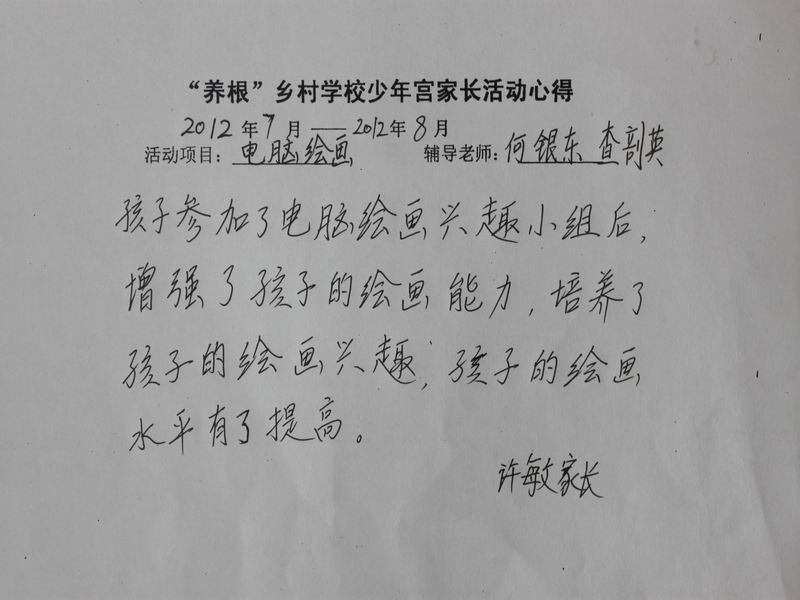 “养根”乡村学校少年宫家长活动心得
2012年7月——2012年8月
活动项目：电脑绘画 辅导老师：何银东 查剖英
孩子参加了电脑绘画兴趣小组后，
增强了孩子的绘画能力，培养了
孩子的绘画兴趣，孩子的绘画
水平有了提高。
许敏家长